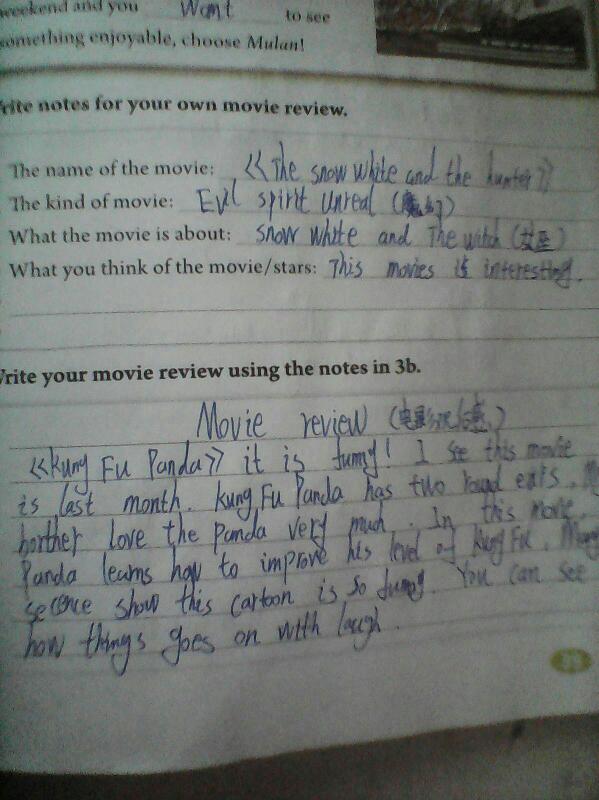 weekend and you Want to see
something enjoyable, choose Mulan!
Write notes for your own movie review.
The name of the movie: 《The snow white and the hunter》
The kind of movie: Evil spirit Unreal (魔幻)
What the movie is about: snow white and The witch (女巫)
What you think of the movie/stars: This movies is interesting.
Write your movie review using the notes in 3b.
Movie review (电影观后感)
《Kung Fu Panda》 it is funny! I see this movie
is last month. Kung Fu Panda has two round ears. M
borther love the panda very much. In this movie.
Panda learns how to improve his level of Kung Fu. Many
secence show this cartoon is so funny. You can see
how things goes on with laugh.